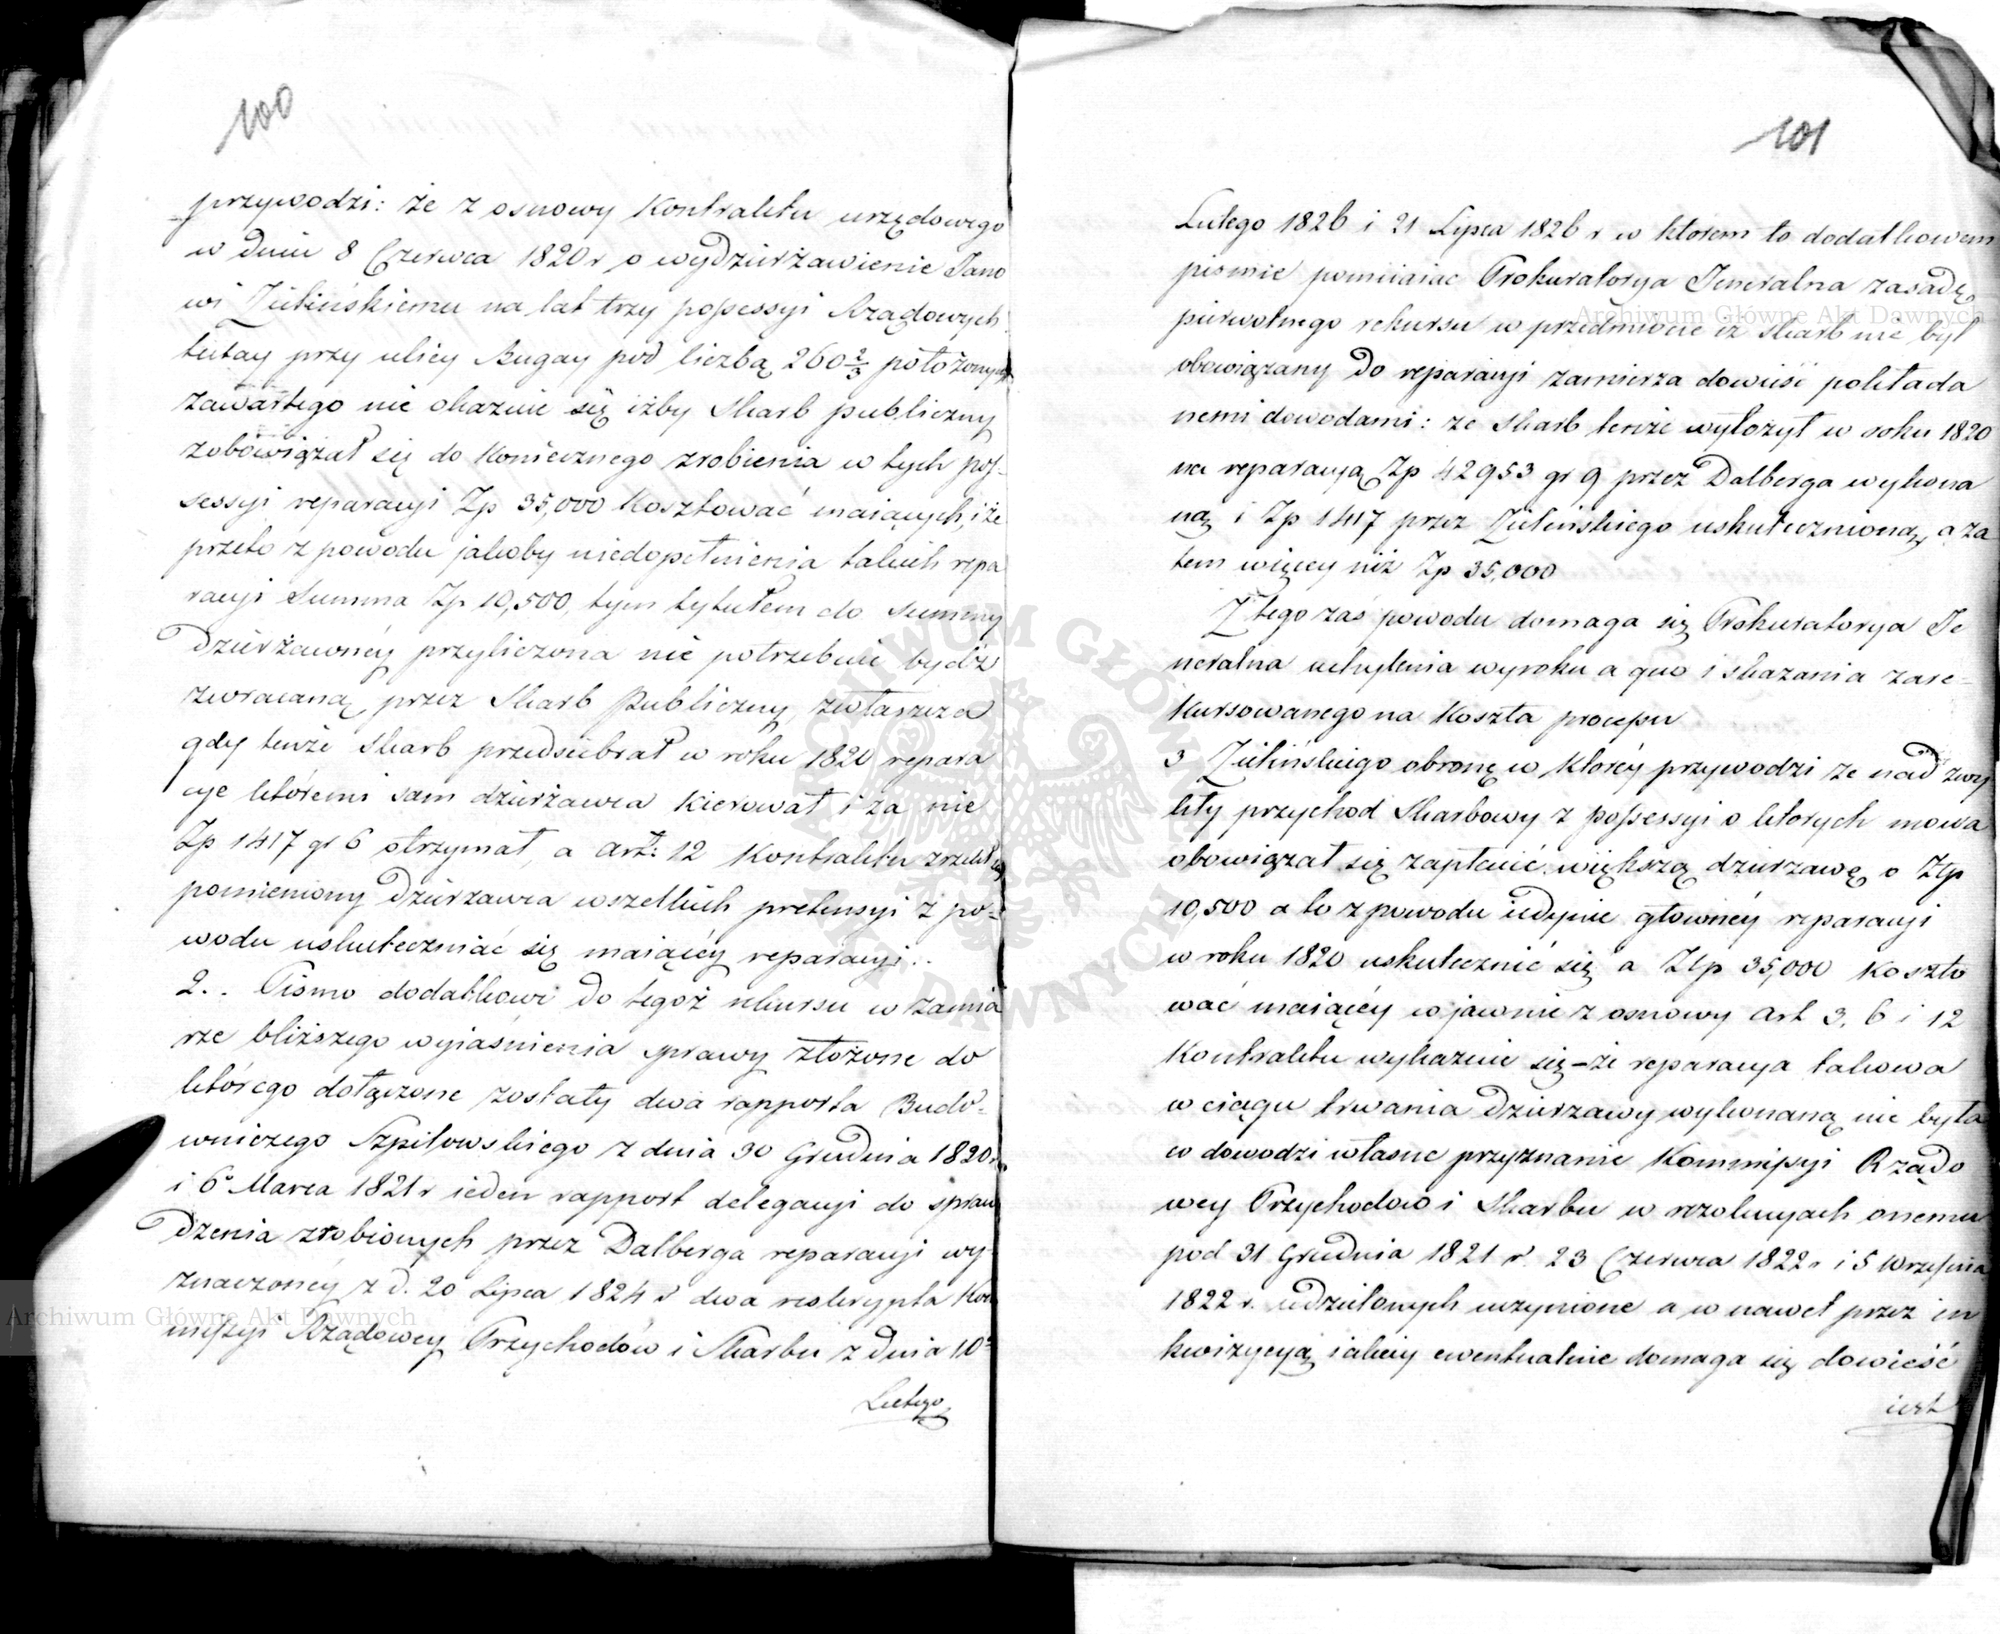 100
przywodzi: że z osnowy Kontraktu urzędowego
w dniu 8 Czerwca 1820 r o wydzierżawienie Jano
wi Zielińskiemu na lat trzy possessyi Rządowych
tutay przy ulicy Bugay pod liczbą 260 2/3 położonych
zawartego nie okazuie się iżby Skarb publiczny
zobowiązał się do koniecznego zrobienia w tych pos-
sessyi reparacyi Zp 35,000 kosztować maiących, i że
przeto z powodu jakoby niedopełnienia takich repa
racyi Summa Zp 10,500, tym tytułem do Summy
Dzierżawnéy przyliczona nie potrzebuie bydź
zwracaną przez Skarb Publiczny, zwłaszcza
gdy tenże Skarb przedsiebrał w roku 1820 repara
cye któremi sam dzierżawca kierował i za nie
Zp 1417 gr 6 otrzymał, a art: 12 Kontraktu zrzekł się
pomieniony Dzierżawca wszelkich pretensyi z po-
wodu uskuteczniać się maiącéy reparacyi..
2.. Pismo dodatkowe do tegoż rekursu w zamia
rze bliższego wyiaśnienia sprawy złożone do
którego dołączone zostały dwa rapporta Budo-
wniczego Szpilowskiego z dnia 30 Grudnia 1820 r
i 6 Marca 1821 r ieden rapport delegacyi do spraw
dzenia zrobionych przez Dalberga reparacyi wy-
znaczonéy z d. 20 Lipca 1824 r dwa reskrypta Kom
missyi Rządowey Przychodów i Skarbu z dnia 10
Lutego
101
Lutego 1826 i 21 Lipca 1826 r w ktorem to dodatkowem
pismie pomiiaiac Prokuratorya Jeneralna zasadę
pierwotnego rekursu w przedmiocie iż Skarb nie był
obowiązany do reparacyi zamierza dowieść pokłada
nemi dowodami: ze Skarb tenże wyłożył w roku 1820
na reparacyą Zp 42953 gr 9 przez Dalberga wykona
ną i Zp 1417 przez Zielińskiego uskutecznioną, a za
tem więcey niż Zp 35,000
Z tego zaś powodu domaga się Prokuratorya Je
neralna uchylenia wyroku a quo i skazania zare-
kursowanego na koszta processu
3 Zielińskiego obronę w którey przywodzi ze nad zwy
kły przychod Skarbowy z possessyi o ktorych mowa
obowiązał się zapłacić większą dzierzawę o Złp
10,500 a to z powodu iedynie głownéy reparacyi
w roku 1820 uskutecznić się a Złp 35,000 koszto
wać maiącéy co jawnie z osnowy art 3, 6 i 12
Kontraktu wykazuie się – że reparacya takowa
w ciągu trwania Dzierzawy wykonaną nie była
co dowodzi własne przyznanie Kommissyi Rządo
wey Przychodow i Skarbu w rezolucyach onemu
pod 31 Grudnia 1821 r 23 Czerwca 1822 r i 5 Września
1822 r. udzielonych uczynione a co nawet przez in
kwizycyą iakiey ewentualnie domaga się dowieść
iest
Archiwum Główne Akt Dawnych
Archiwum Główne Akt Dawnych
ARCHIWUM GŁÓWNE AKT DAWNYCH